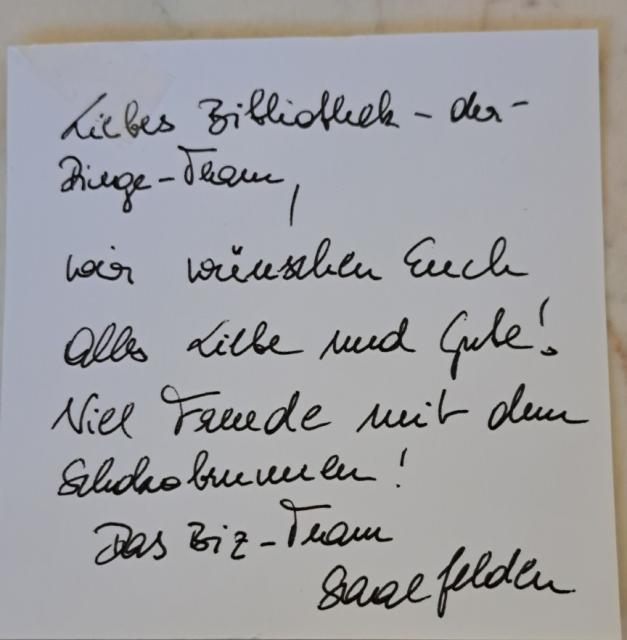 Liebes Bibliothek-der-
Dinge-Team,
wir wünschen Euch
Alles Liebe und Gute!
Viel Freude mit dem
Schokobrunnen!
Das Biz-Team
Saalfelden